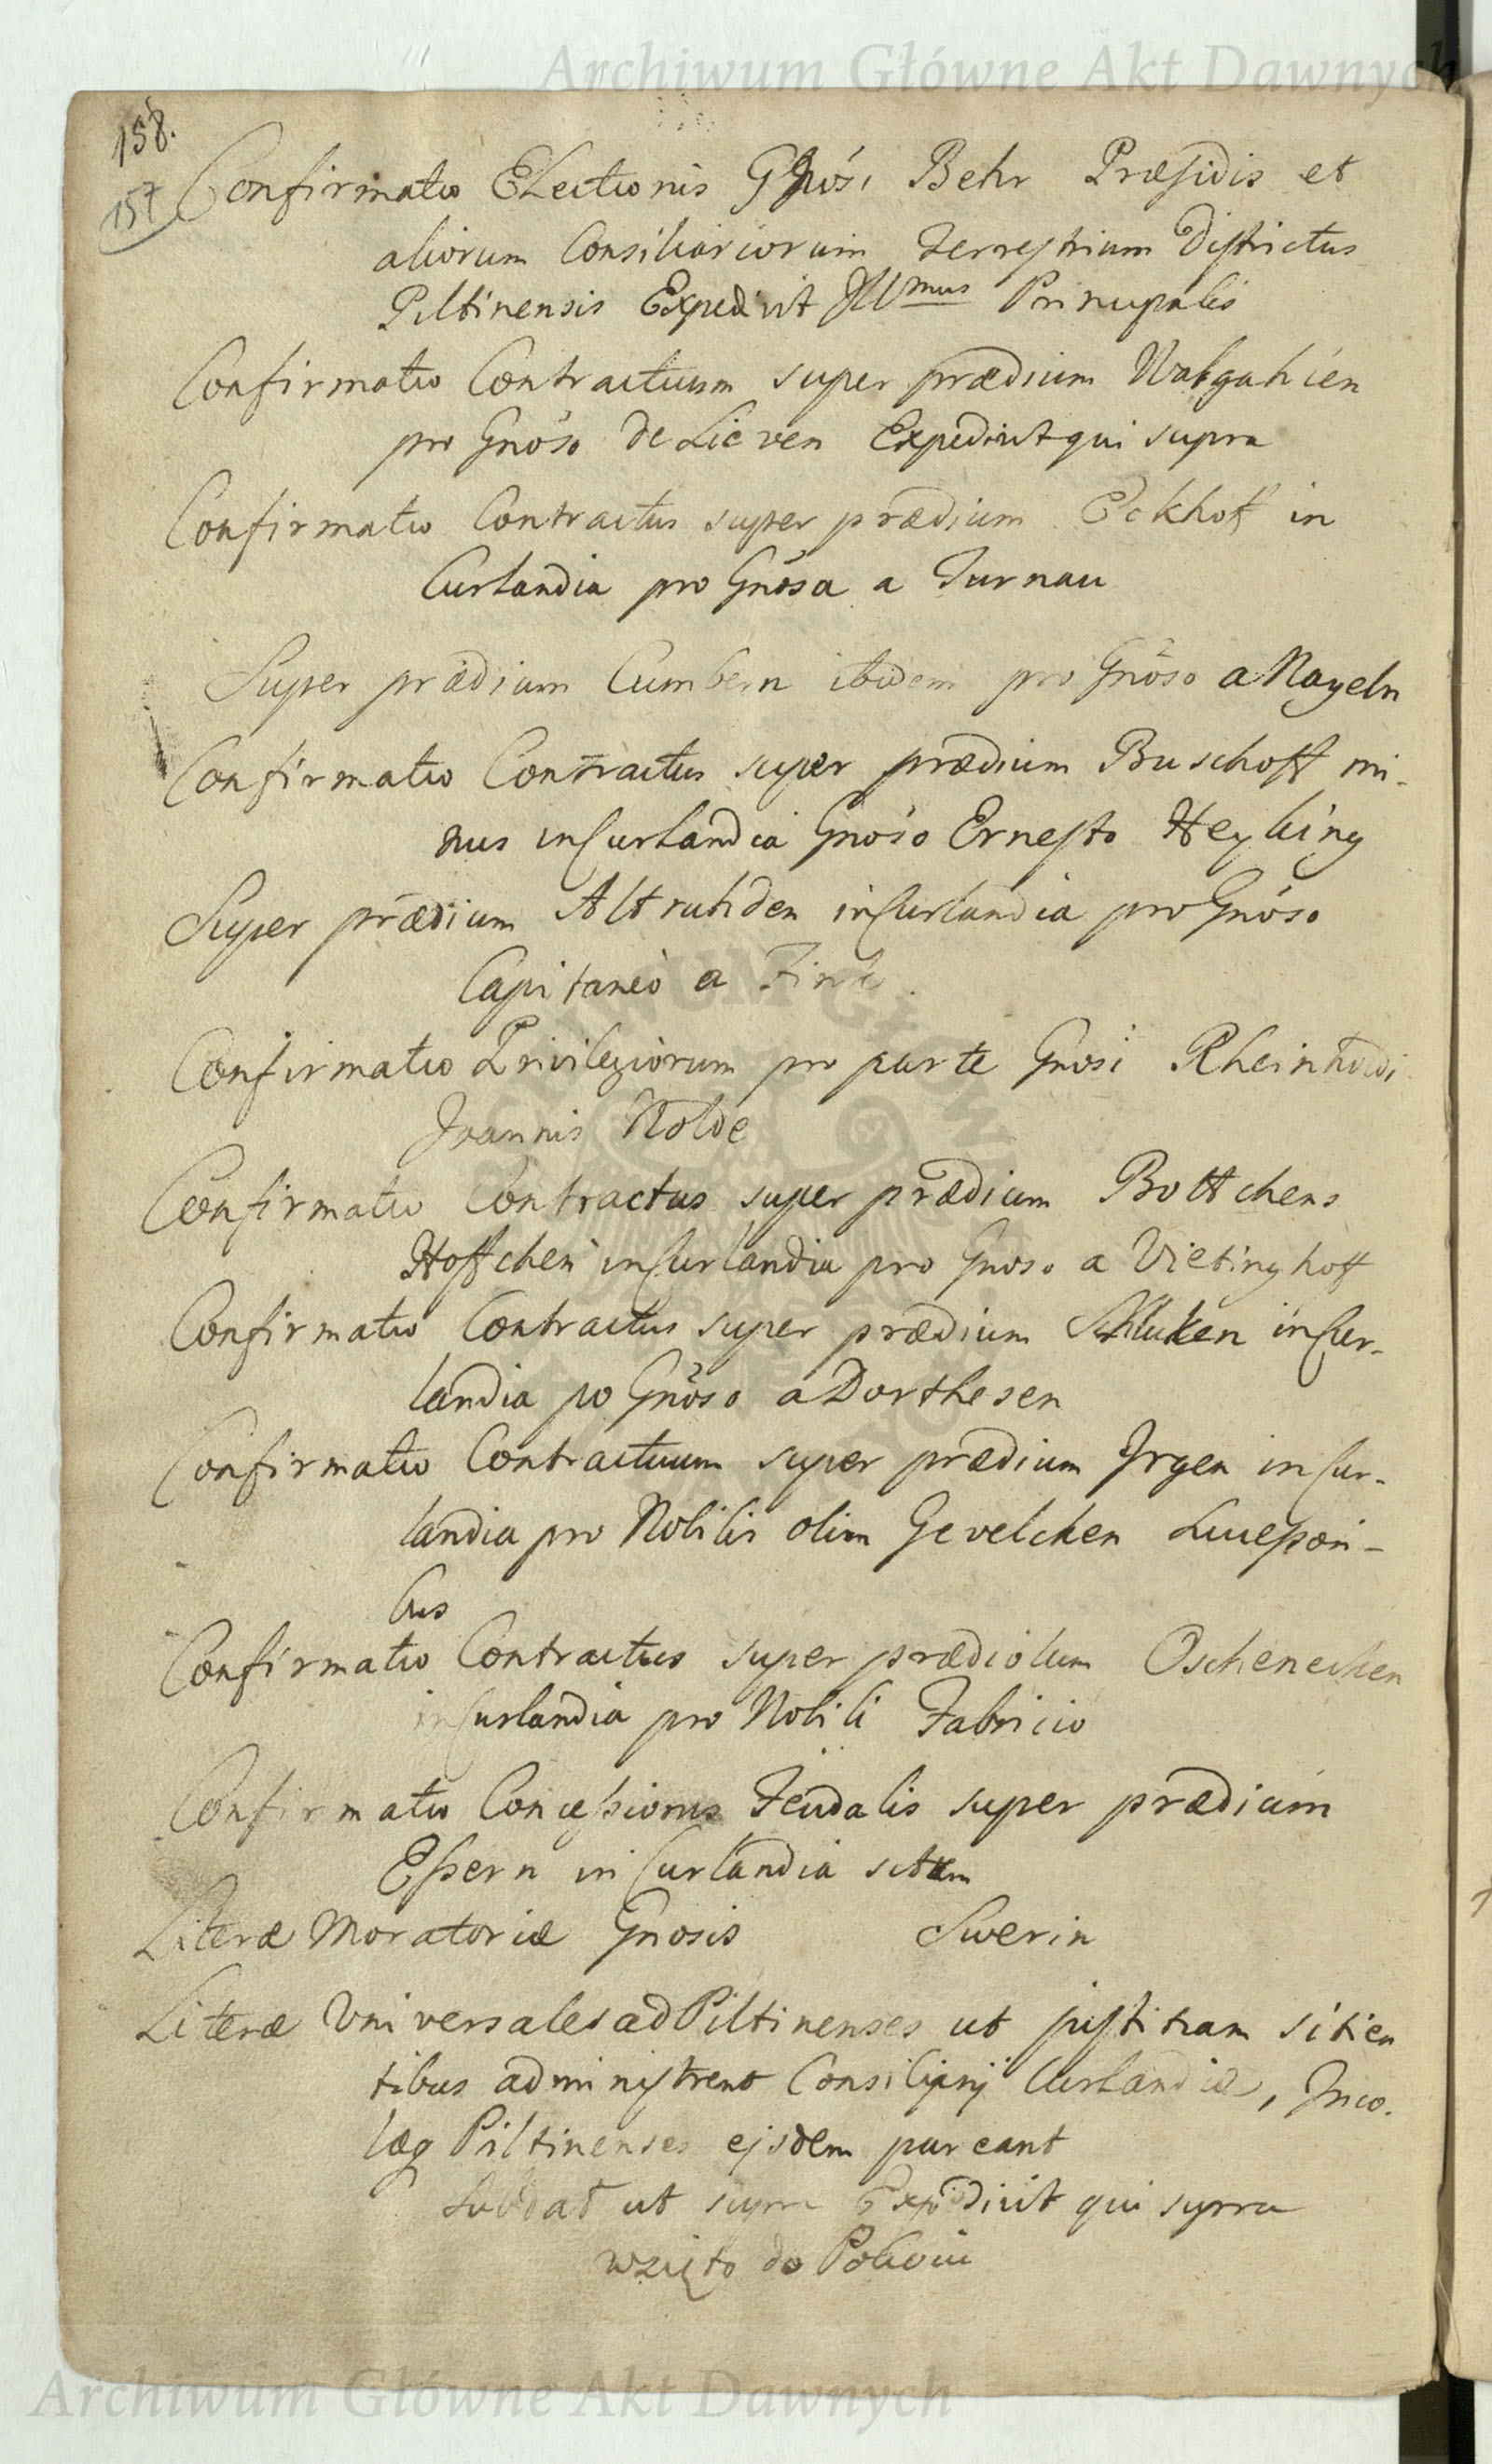 Archiwum Główne Akt Dawnych
158.
157
Confirmatio Electionis Gnosi Behr Præsidis et
aliorum Consiliariorum Terrestrium Districtus
Piltinensis Expedivit Illmus Principalis
Confirmatio Contractuum super prædium Walgahlen
pro Gnoso de Lieven Expedivit qui supra
Confirmatio Contractus super prædium Eckhoff in
Curlandia pro Gnosa a Turnau
Super prædium Cumbern ibidem pro Gnoso a Nageln
Confirmatio Contractus super prædium Buschoff mi-
nus in Curlandia Gnoso Ernesto Heyking
Super prædium Altrahden in Curlandia pro Gnoso
Capitaneo a Finck
Confirmatio Privilegiorum pro parte Gnosi Rheinholdi
Joannis Nolde
Confirmatio Contractus super prædium Bottchens
Hoffchen in Curlandia pro Gnoso a Vietinghoff
Confirmatio Contractus super prædium in Cur-
landia pro Gnoso a Dorthesen
Confirmatio Contractuum super prædium Irgen in Cur-
landia pro Nobilis olim Gevelcken Successori-
bus
Confirmatio Contractus super prædiolum Oschenecken
in Curlandia pro Nobili Fabricio
Confirmatio Concessionis Feudalis super prædium
Essern in Curlandia situm
Literæ Moratoriæ Gnosis Swerin
Literæ Universales ad Piltinenses ut justitiam sitien
tibus administrent Curlandiæ, Inco-
læq Piltinenses ejsdem pareant
Subdat ut supra Expedivit qui supra
wzięto do
Archiwum Główne Akt Dawnych